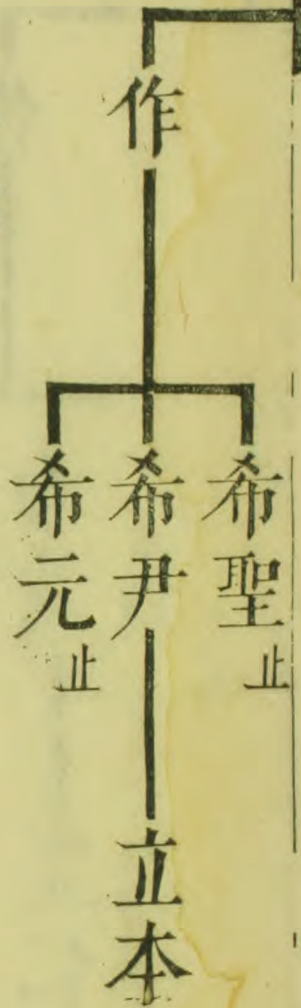 作
希聖 止
希尹
希元 止
立本